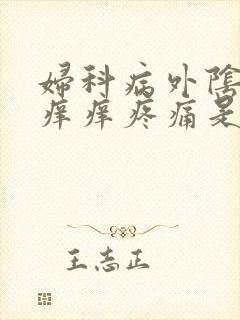 婦科病外陰
痒痒疼痛是
王志正